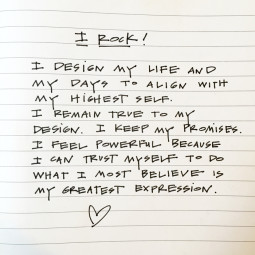 I ROCK!
I DESIGN MY LIFE AND
MY DAYS TO ALIGN WITH
MY HIGHEST SELF.
I REMAIN TRUE TO MY
DESIGN. I KEEP MY PROMISES.
I FEEL POWERFUL BECAUSE
I CAN TRUST MYSELF TO DO
WHAT I MOST BELIEVE IS
MY GREATEST EXPRESSION.